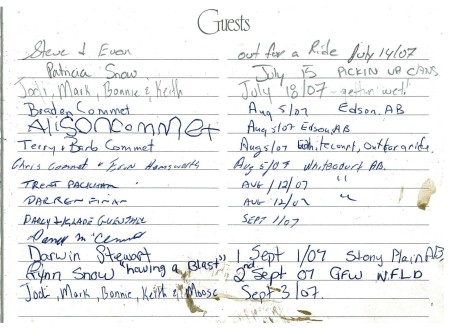 Guests
Steve & Evan out for a Ride July 14/07
Patricia Snow July 15 PICKIN UP CANS
Jodi, Mark, Bonnie & Keith July 18/07 - gettin' wet!
Braden Commet Aug 5/07 Edson, AB
Alison Commet Aug 5/07 Edson, AB
Terry & Barb Commet Aug 5/07 Whitecourt, Out for a ride.
Chris Commet & Erin Hemsworth Aug 5/07 Whitecourt AB.
TRENT PACKHAM AUG /12/07 "
DARREN AUG /12/07 "
DARCY & SLADE GUENTHER SEPT 1/07
Darwin Stewart 1 Sept 1/07 Stony Plain AB
Lynn Snow "having a Blast" 2nd Sept 07 GFW NFLD
Jodi, Mark, Bonnie, Keith & Moose Sept 3/07.